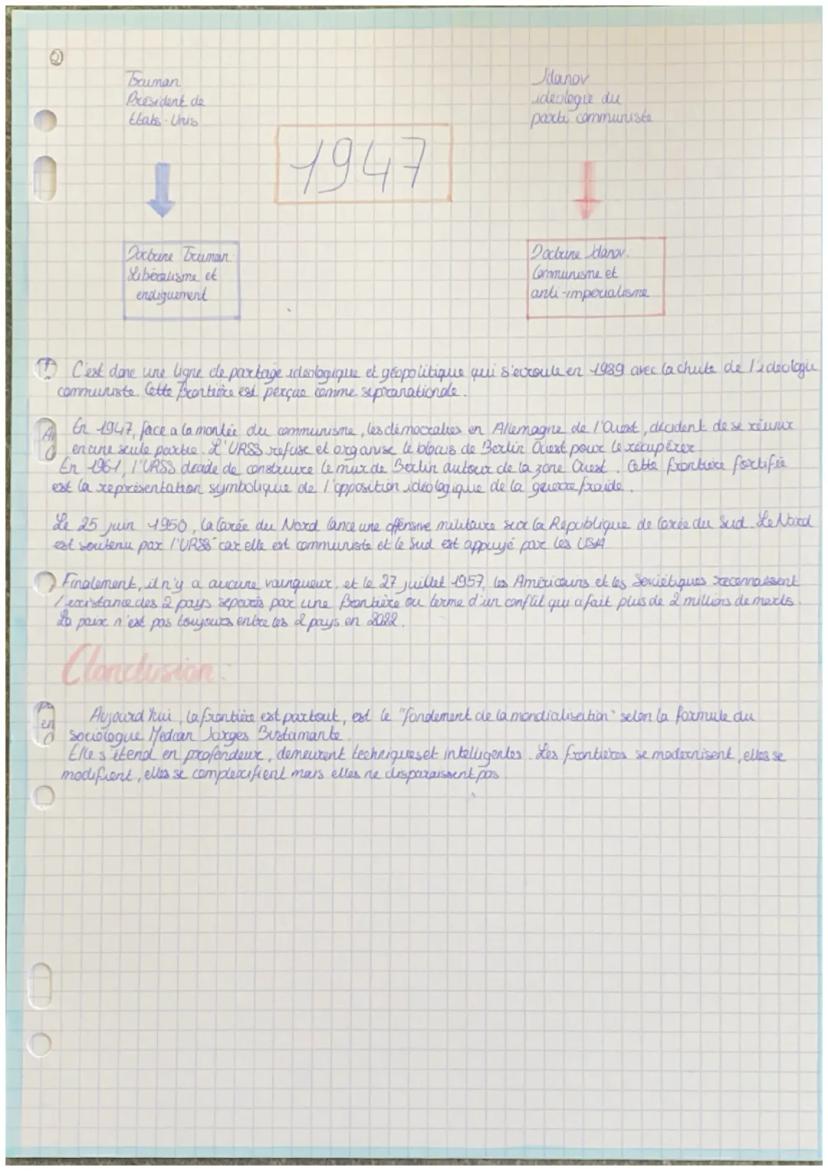 ②
Truman
President de
Etats-Unis
Jdanov
ideologie du
parti communiste
1947
Doctrine Truman
Libéralisme et
endiguement
Doctrine Jdanov
Communisme et
anti-imperialisme
C'est donc une ligne de partage ideologique et géopolitique qui s'ecroule en 1989 avec la chute de l'ideologie
communiste. Cette frontière est perçue comme supranationale.
En 1947, face a la montée du communisme, les démocraties en Allemagne de l'Ouest, décident de se réunir
en une seule partie. L'URSS refuse et organise le blocus de Berlin Ouest pour le récupérer
En 1961, l'URSS decide de construire le mur de Berlin autour de la zone Ouest. Cette frontière fortifiée
est la représentation symbolique de l'opposition idéologique de la guerre froide.
Le 25 juin 1950, la Corée du Nord lance une offensive militaire sur la République de Corée du Sud. Le Nord
est soutenu par l'URSS car elle est communiste et le Sud est appuyé par les USA
Finalement, il n'y a aucune vainqueur, et le 27 juillet 1957, les Américains et les Soviétiques reconnaissent
l'existance des 2 pays separés par une frontière au terme d'un conflit qui a fait plus de 2 millions de morts.
La paix n'est pas toujours entre les 2 pays en 2022.
Conclusion:
Aujourd'hui, la frontière est partout, est le "fondement de la mondialisation" selon la formule du
sociologue Jorges Bustamante
Elle s'étend en profondeur, demeurent techniques et intelligentes. Les frontières se modernisent, elles se
modifient, elles se complexifient mais elles ne disparaissent pas